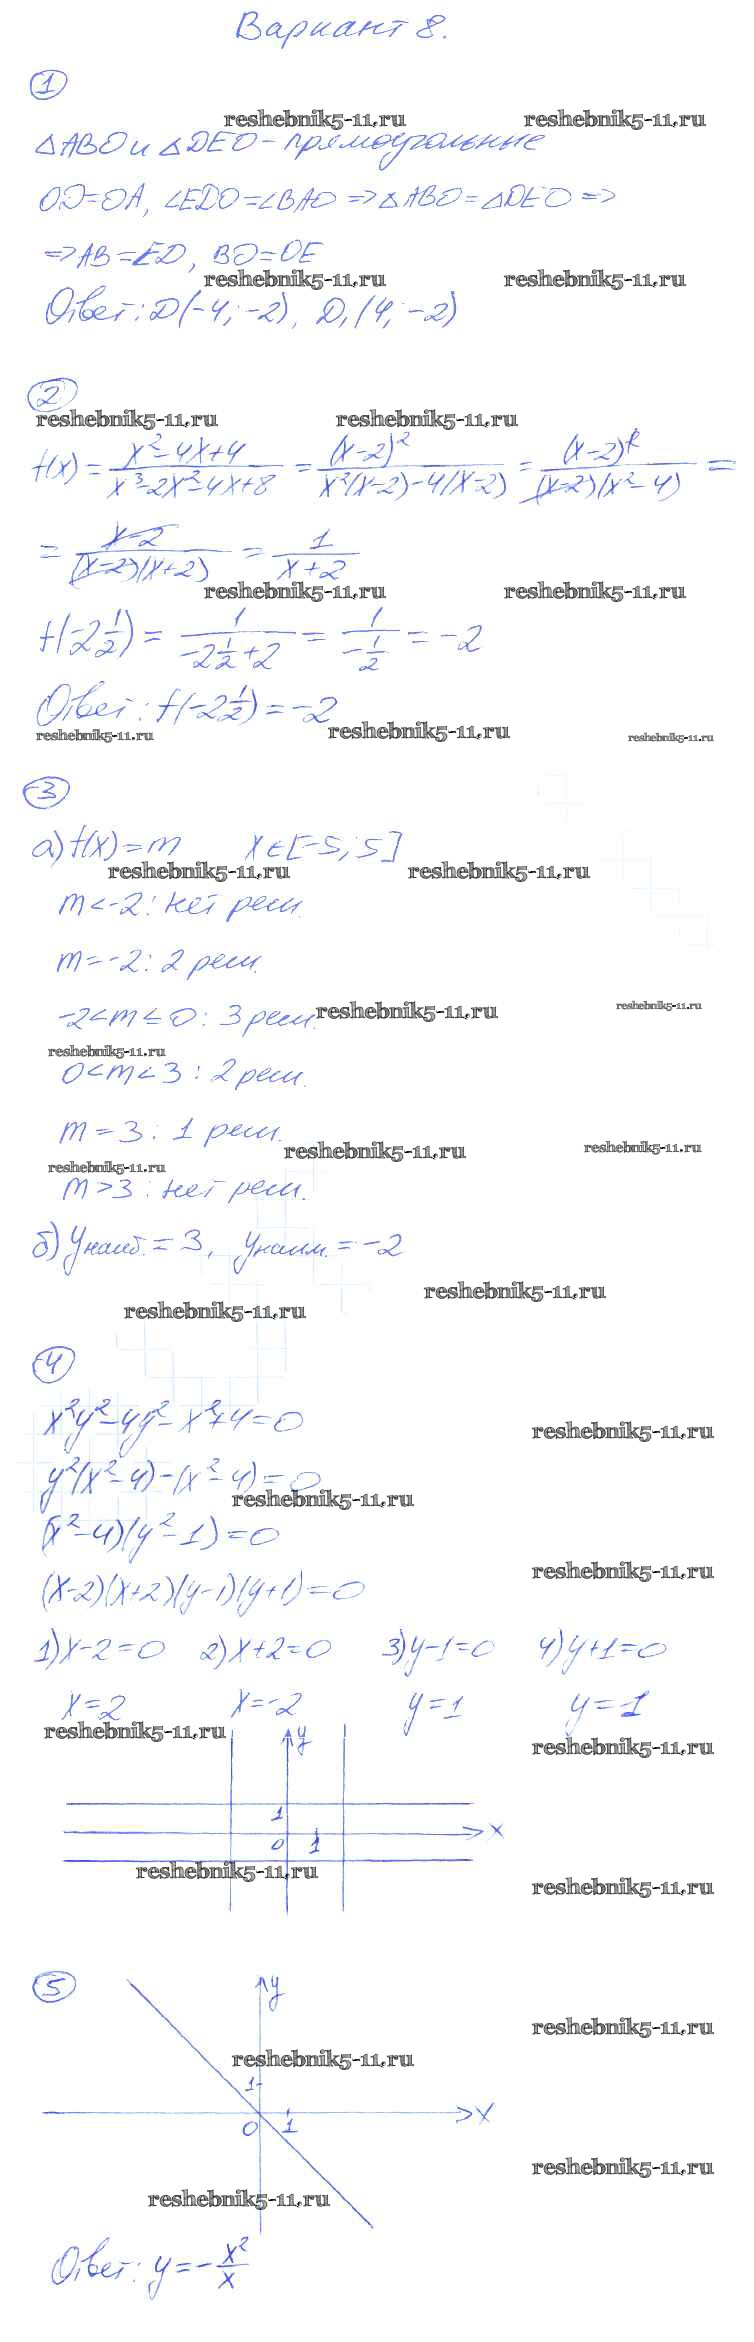 Вариант 8.
1
reshebnik5-11.ru reshebnik5-11.ru
△ABO и △DEO - прямоугольные
OD=OA, ∠EDO=∠BAO => △ABO=△DEO =>
=> AB=ED, BO=OE
reshebnik5-11.ru reshebnik5-11.ru
Ответ: D(-4; -2), D₁(4; -2)
2
reshebnik5-11.ru reshebnik5-11.ru
f(x) = (x²-4x+4)/(x³-2x²-4x+8) = (x-2)²/(x²(x-2)-4(x-2)) = (x-2)²/((x-2)(x²-4)) =
= (x-2)/((x-2)(x+2)) = 1/(x+2)
reshebnik5-11.ru reshebnik5-11.ru
f(-2 1/2) = 1/(-2 1/2 + 2) = 1/(-1/2) = -2
Ответ: f(-2 1/2) = -2
reshebnik5-11.ru reshebnik5-11.ru reshebnik5-11.ru
3
а) f(x) = m x∈[-5; 5]
reshebnik5-11.ru reshebnik5-11.ru
m<-2: нет реш.
m=-2: 2 реш.
-2<m≤0: 3 реш.
reshebnik5-11.ru reshebnik5-11.ru
reshebnik5-11.ru
0<m<3: 2 реш.
m=3: 1 реш.
reshebnik5-11.ru reshebnik5-11.ru
reshebnik5-11.ru
m>3: нет реш.
б) yнаиб. = 3, yнаим. = -2
reshebnik5-11.ru
reshebnik5-11.ru
4
x²y²-4y²-x²+4=0
reshebnik5-11.ru
y²(x²-4)-(x²-4)=0
reshebnik5-11.ru
(x²-4)(y²-1)=0
reshebnik5-11.ru
(x-2)(x+2)(y-1)(y+1)=0
1) x-2=0 2) x+2=0 3) y-1=0 4) y+1=0
x=2 x=-2 y=1 y=-1
reshebnik5-11.ru reshebnik5-11.ru
y
1
0 1 x
reshebnik5-11.ru
reshebnik5-11.ru
5
y
reshebnik5-11.ru
reshebnik5-11.ru
1
0 1 x
reshebnik5-11.ru
reshebnik5-11.ru
Ответ: y = -x²/x